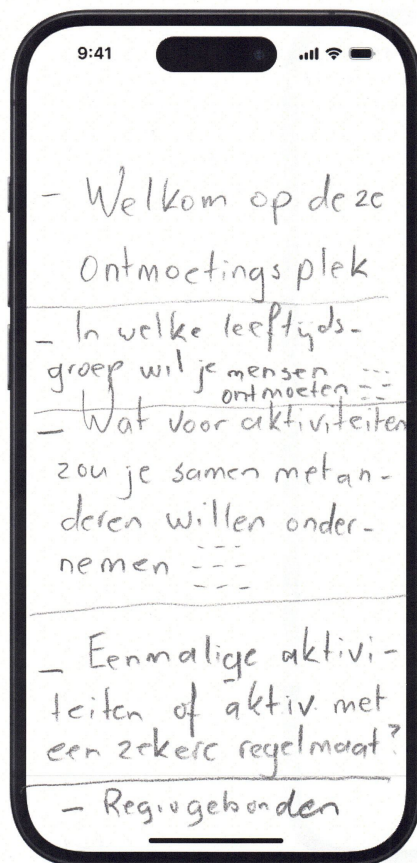 9:41
- Welkom op deze
Ontmoetingsplek
- In welke leeftijds-
groep wil je mensen ---
ontmoeten ---
- Wat voor aktiviteiten
zou je samen met an-
deren willen onder-
nemen ---
- Eenmalige aktivi-
teiten of aktiv. met
een zekere regelmaat?
- Regiogebonden